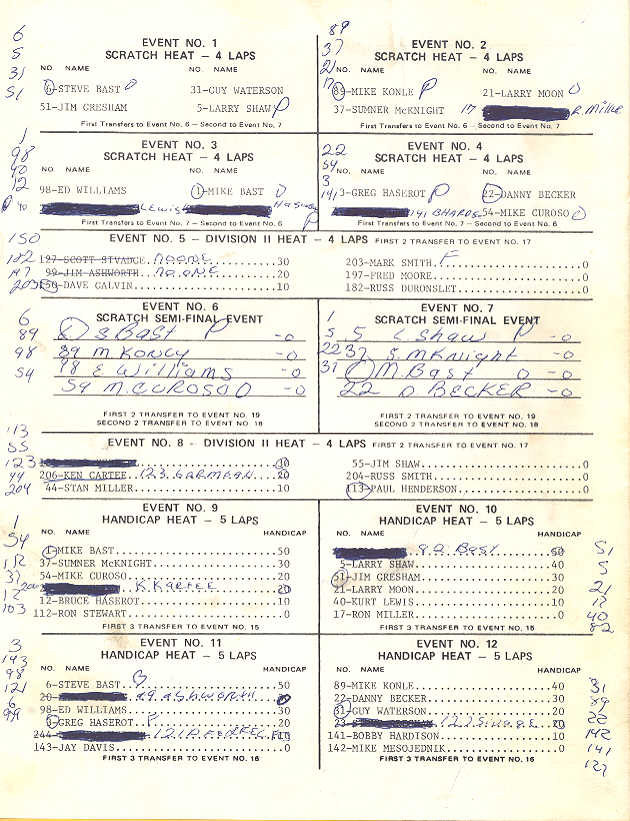 6
5
31
51
EVENT NO. 1
SCRATCH HEAT – 4 LAPS
NO. NAME NO. NAME
6-STEVE BAST 31-GUY WATERSON
51-JIM GRESHAM 5-LARRY SHAW P
First Transfers to Event No. 6 – Second to Event No. 7
89
37
21
17
EVENT NO. 2
SCRATCH HEAT – 4 LAPS
NO. NAME NO. NAME
89-MIKE KONLE P 21-LARRY MOON O
37-SUMNER McKNIGHT 17 R. Miller
First Transfers to Event No. 6 – Second to Event No. 7
1
98
40
12
EVENT NO. 3
SCRATCH HEAT – 4 LAPS
NO. NAME NO. NAME
98-ED WILLIAMS 1-MIKE BAST O
40 Lewis
First Transfers to Event No. 7 – Second to Event No. 6
22
54
3
141
EVENT NO. 4
SCRATCH HEAT – 4 LAPS
NO. NAME NO. NAME
3-GREG HASEROT P 22-DANNY BECKER
141 BHARDS 54-MIKE CUROSO O
First Transfers to Event No. 7 – Second to Event No. 6
150
182
197
203
EVENT NO. 5 – DIVISION II HEAT – 4 LAPS FIRST 2 TRANSFER TO EVENT NO. 17
197-SCOTT STVADGE NOONE 30 203-MARK SMITH F 0
99-JIM ASHWORTH NOONE 20 197-FRED MOORE 0
150-DAVE GALVIN 10 182-RUSS DURONSLET 0
6
89
98
54
EVENT NO. 6
SCRATCH SEMI-FINAL EVENT
6 S BAST P -0
89 M. KONLY -0
98 E Williams -0
54 M. CUROSO O -0
FIRST 2 TRANSFER TO EVENT NO. 19
SECOND 2 TRANSFER TO EVENT NO. 18
1
5
22
37
EVENT NO. 7
SCRATCH SEMI-FINAL EVENT
5 L Shaw P -0
37 S. McKnight -0
1 M. Bast O -0
22 D BECKER -0
FIRST 2 TRANSFER TO EVENT NO. 19
SECOND 2 TRANSFER TO EVENT NO. 18
113
55
123
44
204
EVENT NO. 8 - DIVISION II HEAT – 4 LAPS FIRST 2 TRANSFER TO EVENT NO. 17
10 55-JIM SHAW 0
206-KEN CARTEE 123 GARMEAN 20 204-RUSS SMITH 0
44-STAN MILLER 10 113-PAUL HENDERSON 0
1
54
112
37
12
103
EVENT NO. 9
HANDICAP HEAT – 5 LAPS
NO. NAME HANDICAP
1-MIKE BAST 50
37-SUMNER McKNIGHT 30
54-MIKE CUROSO 20
K KARTEE 20
12-BRUCE HASEROT 10
112-RON STEWART 0
FIRST 3 TRANSFER TO EVENT NO. 15
EVENT NO. 10
HANDICAP HEAT – 5 LAPS
NO. NAME HANDICAP
82 Bast 50
5-LARRY SHAW 40
51-JIM GRESHAM 30
21-LARRY MOON 20
40-KURT LEWIS 10
17-RON MILLER 0
FIRST 3 TRANSFER TO EVENT NO. 16
51
5
21
40
82
3
143
98
121
6
99
EVENT NO. 11
HANDICAP HEAT – 5 LAPS
NO. NAME HANDICAP
6-STEVE BAST 50
99 ASHWORTH
98-ED WILLIAMS 30
3-GREG HASEROT P 20
244 121 F10
143-JAY DAVIS 0
FIRST 3 TRANSFER TO EVENT NO. 16
EVENT NO. 12
HANDICAP HEAT – 5 LAPS
NO. NAME HANDICAP
89-MIKE KONLE 40
22-DANNY BECKER 30
31-GUY WATERSON 20
20
141-BOBBY HARDISON 10
142-MIKE MESOJEDNIK 0
FIRST 3 TRANSFER TO EVENT NO. 16
31
89
22
142
141
127